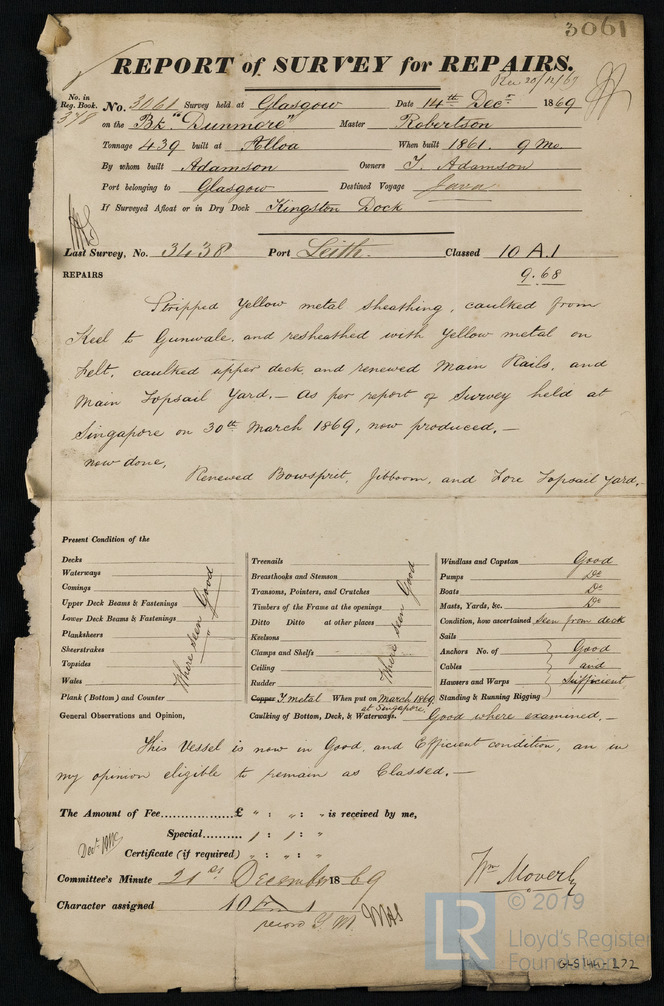 3061
REPORT of SURVEY for REPAIRS.
Rec 20/12/69
No. in Reg. Book.
378
No. 3061 Survey held at Glasgow Date 14th Decr 1869
on the Bk "Dunmore" Master Robertson
Tonnage 439 built at Alloa When built 1861. 9 Mo.
By whom built Adamson Owners T. Adamson
Port belonging to Glasgow Destined Voyage Java
If Surveyed Afloat or in Dry Dock Kingston Dock
Last Survey, No. 3438 Port Leith. Classed 10 A.1
9.68
REPAIRS
Stripped Yellow metal sheathing, caulked from
Keel to Gunwale, and resheathed with Yellow metal on
felt, caulked upper deck, and renewed Main Rails, and
Main Topsail Yard. – As per report of Survey held at
Singapore on 30th March 1869, now produced. –
now done,
Renewed Bowsprit, Jibboom, and Fore Topsail Yard. –
Present Condition of the
Decks
Waterways
Comings
Upper Deck Beams & Fastenings
Lower Deck Beams & Fastenings
Planksheers
Sheerstrakes
Topsides
Wales
Plank (Bottom) and Counter
Where seen Good
Treenails
Breasthooks and Stemson
Transoms, Pointers, and Crutches
Timbers of the Frame at the openings
Ditto Ditto at other places
Keelsons
Clamps and Shelfs
Ceiling
Rudder
Where seen Good
Copper Y. metal When put on March 1869
at Singapore,
Windlass and Capstan Good
Pumps Do
Boats Do
Masts, Yards, &c. Do
Condition, how ascertained Seen from deck
Sails
Anchors No. of Good
Cables and
Hawsers and Warps Sufficient
Standing & Running Rigging
General Observations and Opinion, Caulking of Bottom, Deck, & Waterways. Good where examined. –
This Vessel is now in Good, and Efficient condition, an in
my opinion eligible to remain as Classed. –
The Amount of Fee £ " : " : " is received by me,
Special 1 : 1 : "
Certificate (if required) " : " : "
Committee's Minute 21st December 1869
Character assigned 10
record Y. M.
Wm Moverly
© 2019
LR
Lloyd's Register
Foundation